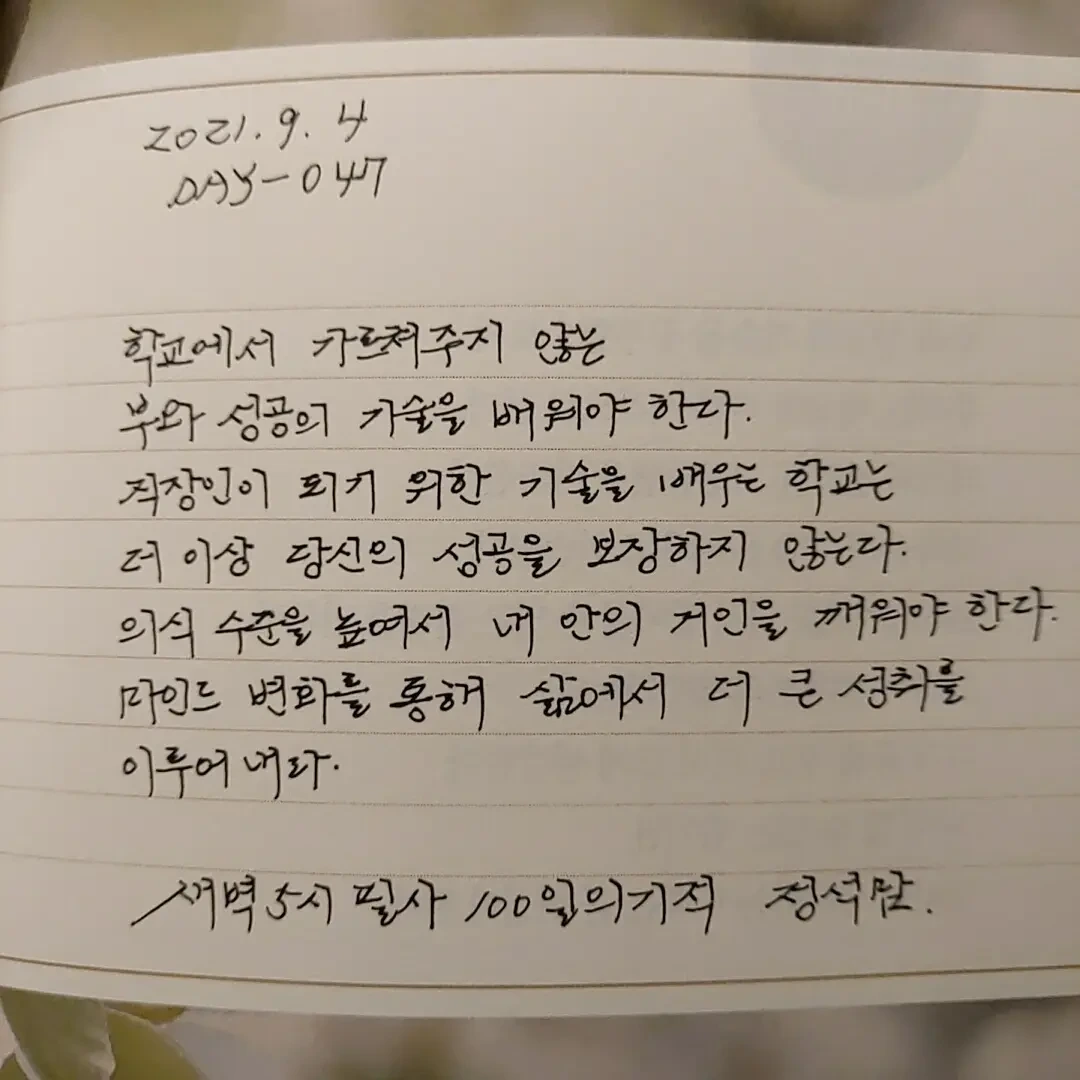 2021. 9. 4
DAY-047
학교에서 가르쳐주지 않는
부와 성공의 기술을 배워야 한다.
직장인이 되기 위한 기술을 배우는 학교는
더 이상 당신의 성공을 보장하지 않는다.
의식 수준을 높여서 내 안의 거인을 깨워야 한다.
마인드 변화를 통해 삶에서 더 큰 성취를
이루어 내라.
새벽 5시 필사 100일의기적